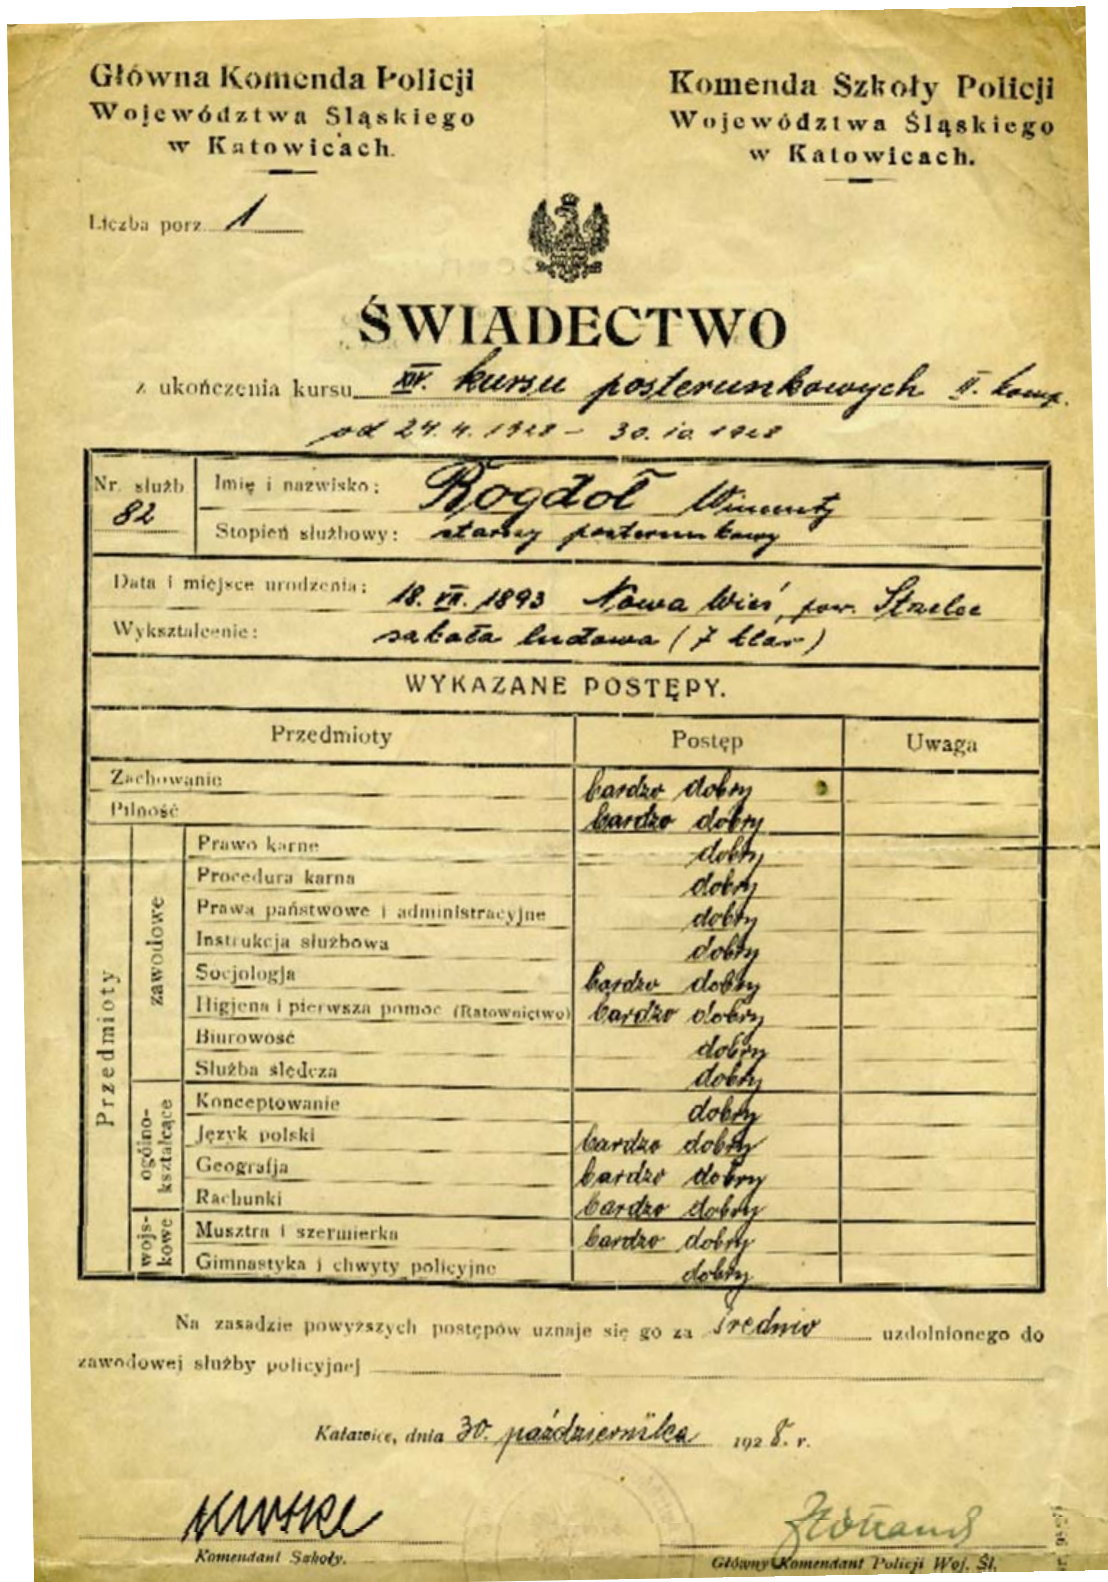 Główna Komenda Policji
Województwa Śląskiego
w Katowicach.
Komenda Szkoły Policji
Województwa Śląskiego
w Katowicach.
Liczba porz. 1
ŚWIADECTWO
z ukończenia kursu XIV. kursu posterunkowych II. komp.
od 24.4.1928 – 30.10.1928
Nr. służb
82
Imię i nazwisko: Rogdoł Wincenty
Stopień służbowy: starszy posterunkowy
Data i miejsce urodzenia: 18. VII. 1893 Nowa Wieś, pow. Strzelce
Wykształcenie: szkoła ludowa (7 klas)
WYKAZANE POSTĘPY.
Przedmioty Postęp Uwaga
Zachowanie bardzo dobry
Pilność bardzo dobry
Przedmioty
zawodowe
Prawo karne dobry
Procedura karna dobry
Prawa państwowe i administracyjne dobry
Instrukcja służbowa dobry
Socjologja bardzo dobry
Higjena i pierwsza pomoc (Ratownictwo) bardzo dobry
Biurowość dobry
Służba śledcza dobry
ogólno-
kształcące
Konceptowanie dobry
Język polski bardzo dobry
Geografja bardzo dobry
Rachunki bardzo dobry
wojs-
kowe
Musztra i szermierka bardzo dobry
Gimnastyka i chwyty policyjne dobry
Na zasadzie powyższych postępów uznaje się go za średnio uzdolnionego do
zawodowej służby policyjnej
Katowice, dnia 30. października 1928. r.
Komendant Szkoły.
Główny Komendant Policji Woj. Śl.